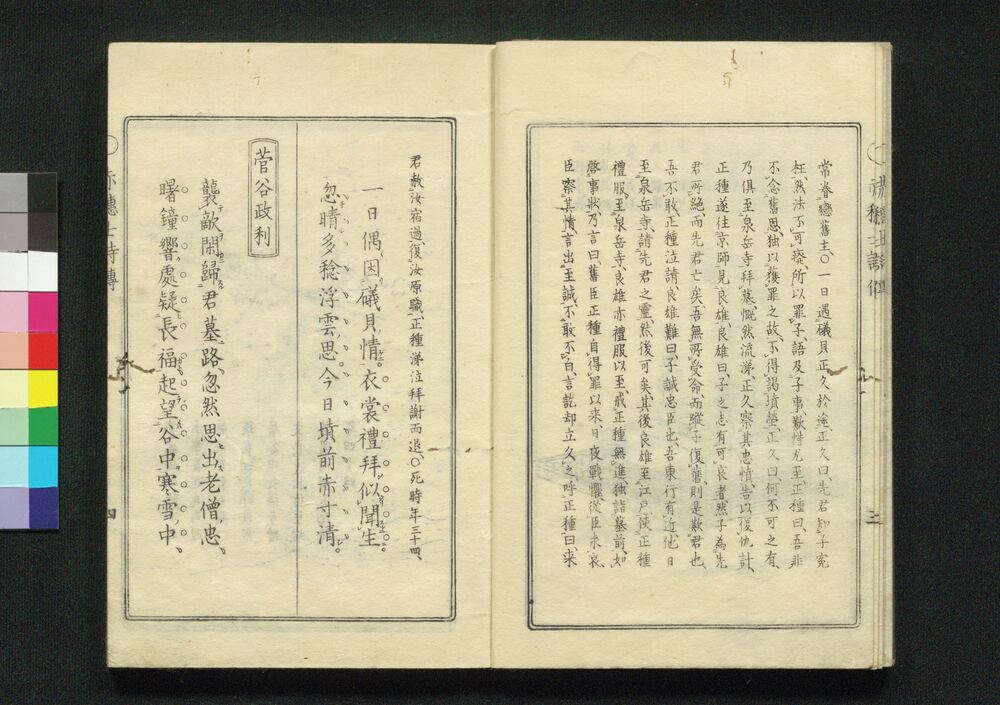 常眷戀舊主、〇一日遇礒貝正久於途、正久曰、先君知子寃
枉、然法不可廢、所以罪子、語及子事、歎惜尤至、正種曰、吾非
不念舊恩、独以獲罪之故、不得謁墳塋、正久曰、何不可之有、
乃俱至泉岳寺拜墓、慨然流涕、正久察其忠憤、告以復仇計、
正種遂往京師見良雄、良雄曰、子之志有可哀者、然子為先
君所絶、而先君亡矣、吾無所受命、而縱子復舊、則是欺君也、
吾不敢、正種泣請、良雄難曰、子誠忠臣也、吾東行有近、他日
至泉岳寺、請先君之靈、然後可矣、其後良雄至江戸、使正種
禮服至泉岳寺、良雄亦禮服以至、戒正種無進、独詣墓前、如
啓事狀、乃言曰、舊臣正種、自得罪以来、日夜戰懼、從臣求哀、
臣察其情、言出至誠、不敢不白、言訖却立久之、呼正種曰、来
三
君赦汝宿過、復汝原職、正種涕泣拜謝而退、〇死時年三十四、
一日偶因礒貝情。衣裳禮拜似聞生。
忽晴多稔浮雲思。今日墳前赤寸清。
菅谷政利
襲敵閑歸君墓路、忽然思出老僧忠、
曙鐘響處疑長福、起望谷中寒雪中、
赤穗士詩傳
四